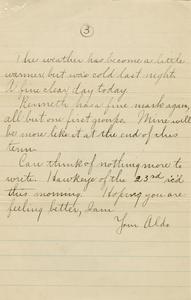 3
The weather has become a little
warmer but was cold last night.
A fine clear day today.
Kenneth has a fine mark again,
all but one first group. Mine will
be more like it at the end of this
term.
Can think of nothing more to
write. Hawkeye of the 23rd rec'd
this morning. Hoping you are
feeling better, I am
Your Aldo